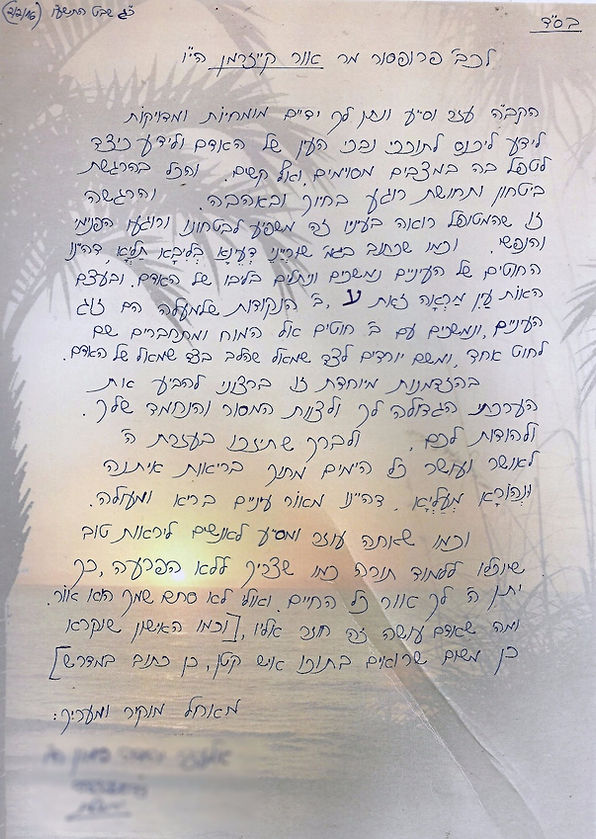 בס״ד
כ״ג שבט התשע״ו (2/2/16)
לכב׳ פרופסור מר אור קייזרמן הי״ו
הקב״ה עזר וסייע ונתן לך ידיים מומחיות ומדויקות
לידע ליכנס לתוככי נבכי העין של האדם ולידע כיצד
לטפל בה במצבים מסוימים, ואף קשים. והכל בהרגשת
ביטחון ותחושת רוגע בחיוך ובאהבה. והרגשה
זו שהמטופל רואה בעיניו זה משפיע לביטחונו ורוגעו הפנימי
והנפשי. וכמו שכתוב בגמ׳ שורייני דעינא בליבא תליא, דהיינו
החוטים של העינים נמשכים ונתלים בליבו של האדם, ובעצם
האות עין מראה זאת ע, ב׳ הנקודות שלמעלה הם זוג
העינים, ונמשכים עם ב׳ חוטים אל המוח ומתחברים שם
לחוט אחד, ומשם יורדים לצד שמאל שהלב בצד שמאל של האדם.
בהזדמנות מיוחדת זו ברצוני להביע את
הערכתי הגדולה לך ולצוות המסור והנחמד שלך.
ולהודות לכם, ולברך שתיזכו בעזרת ה׳
לאושר ועושר כל הימים מתוך בריאות איתנה
ונהורא מעליא, דהיינו מאור עיניים בריא ומעולה.
וכמו שאתה עוזר ומסייע לאנשים לראות טוב
שיוכלו ללמוד תורה כמו שצריך ללא הפרעה, כך
יתן ה׳ לך אור כל החיים. ואולי לא סתם שמך הוא אור.
ומה שאדם עושה זה חוזר אליו, [וכמו האישון שנקרא
כן משום שרואים בתוכו איש קטן, כן כתוב במדרש]
מאחל מוקיר ומעריך: